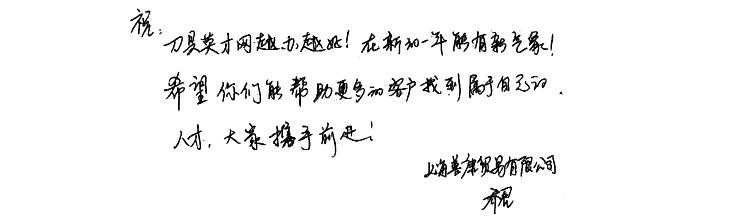 祝：
刀具英才网越办越好！在新的一年能有新气象！
希望你们能帮助更多的客户找到属于自己的
人才，大家携手前进！
上海 贸易有限公司